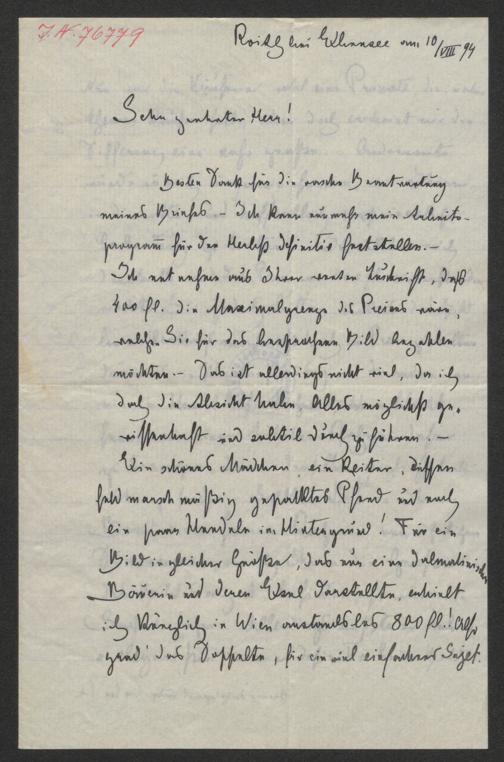 J.N. 76779
Roith bei Ebensee am 10/VIII 94
Sehr geehrter Herr!
Besten Dank für die rasche Beantwortung
meines Briefes – Ich kann nunmehr mein Arbeits-
programm für den Herbst definitiv feststellen. –
Ich entnehme aus Ihrer werten Zuschrift, daß
400 fl. die Maximalgrenze des Preises wäre,
welchen Sie für das besprochene Bild bezahlen
möchten. – Das ist allerdings nicht viel, da ich
doch die Absicht habe, Alles möglichst ge-
wissenhaft und subtil durchzuführen. –
Ein schönes Mädchen, ein Reiter, dessen
feldmarschmäßig gepacktes Pferd und noch
ein paar Handeln im Hintergrund! Für ein
Bild in gleicher Größe, das nur eine dalmatinische
Bäuerin und deren Esel darstellte, erhielt
ich kürzlich in Wien anstandslos 800 fl.! also
grad' das Doppelte, für ein viel einfacheres Sujet.